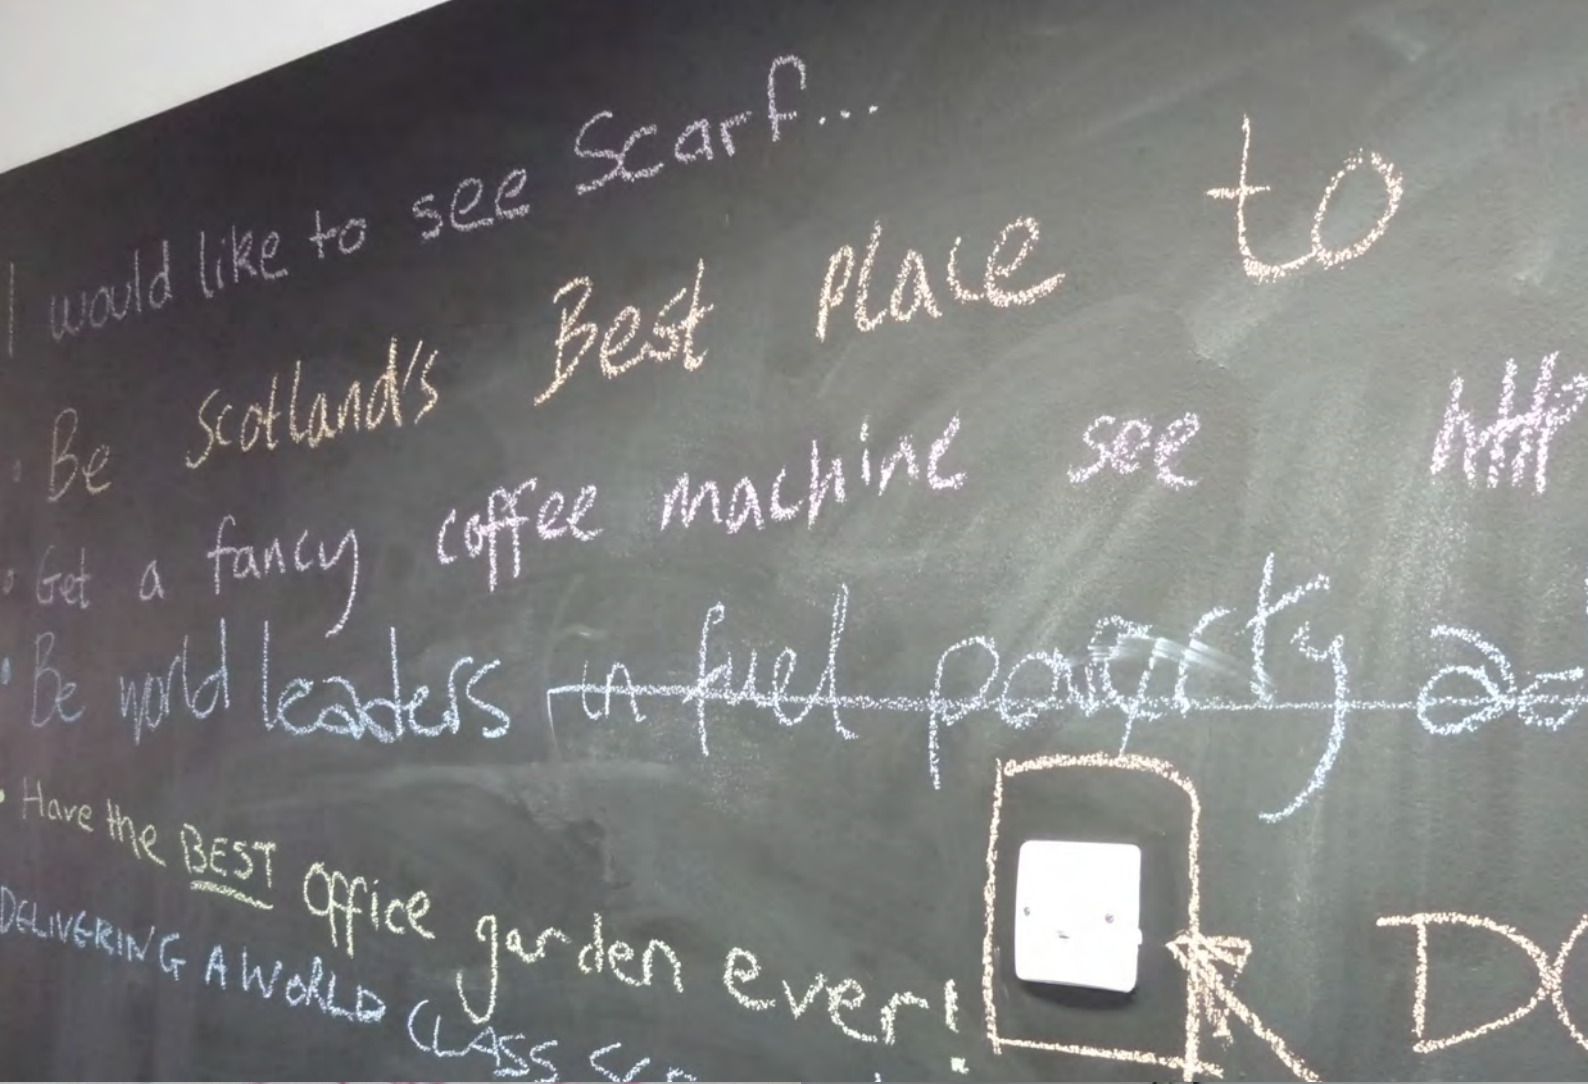 I would like to see Scarf...
• Be Scotland's Best Place to
• Get a fancy coffee machine see
• Be world leaders in fuel poverty
• Have the BEST office garden ever!
DELIVERING A WORLD CLASS